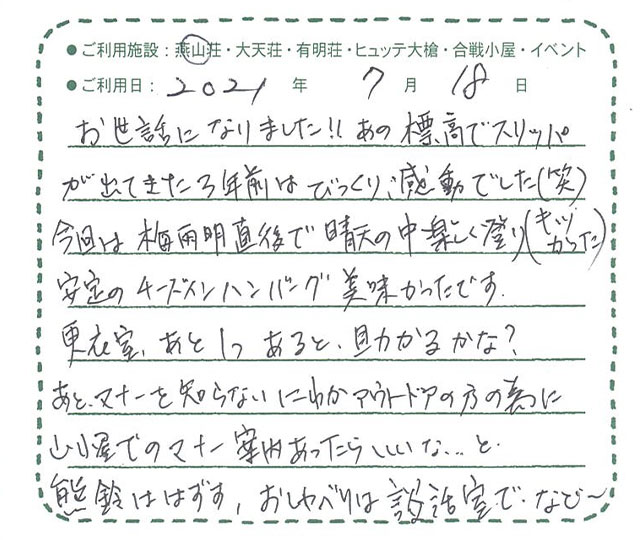 ●ご利用施設：燕山荘・大天荘・有明荘・ヒュッテ大槍・合戦小屋・イベント
●ご利用日：2021年 7月 18日
お世話になりました!! あの標高でスリッパ
が出てきた3年前はびっくり、感動でした(笑)
今回は梅雨明直後で晴天の中楽しく登り(キツかった)
安定のチーズインハンバーグ美味かったです.
更衣室、あと1つあると、助かるかな?
あと、マナーを知らないにわかアウトドアの方の為に
山小屋でのマナー案内あったらいいな...と.
熊鈴ははずす, おしゃべりは談話室で.など〜